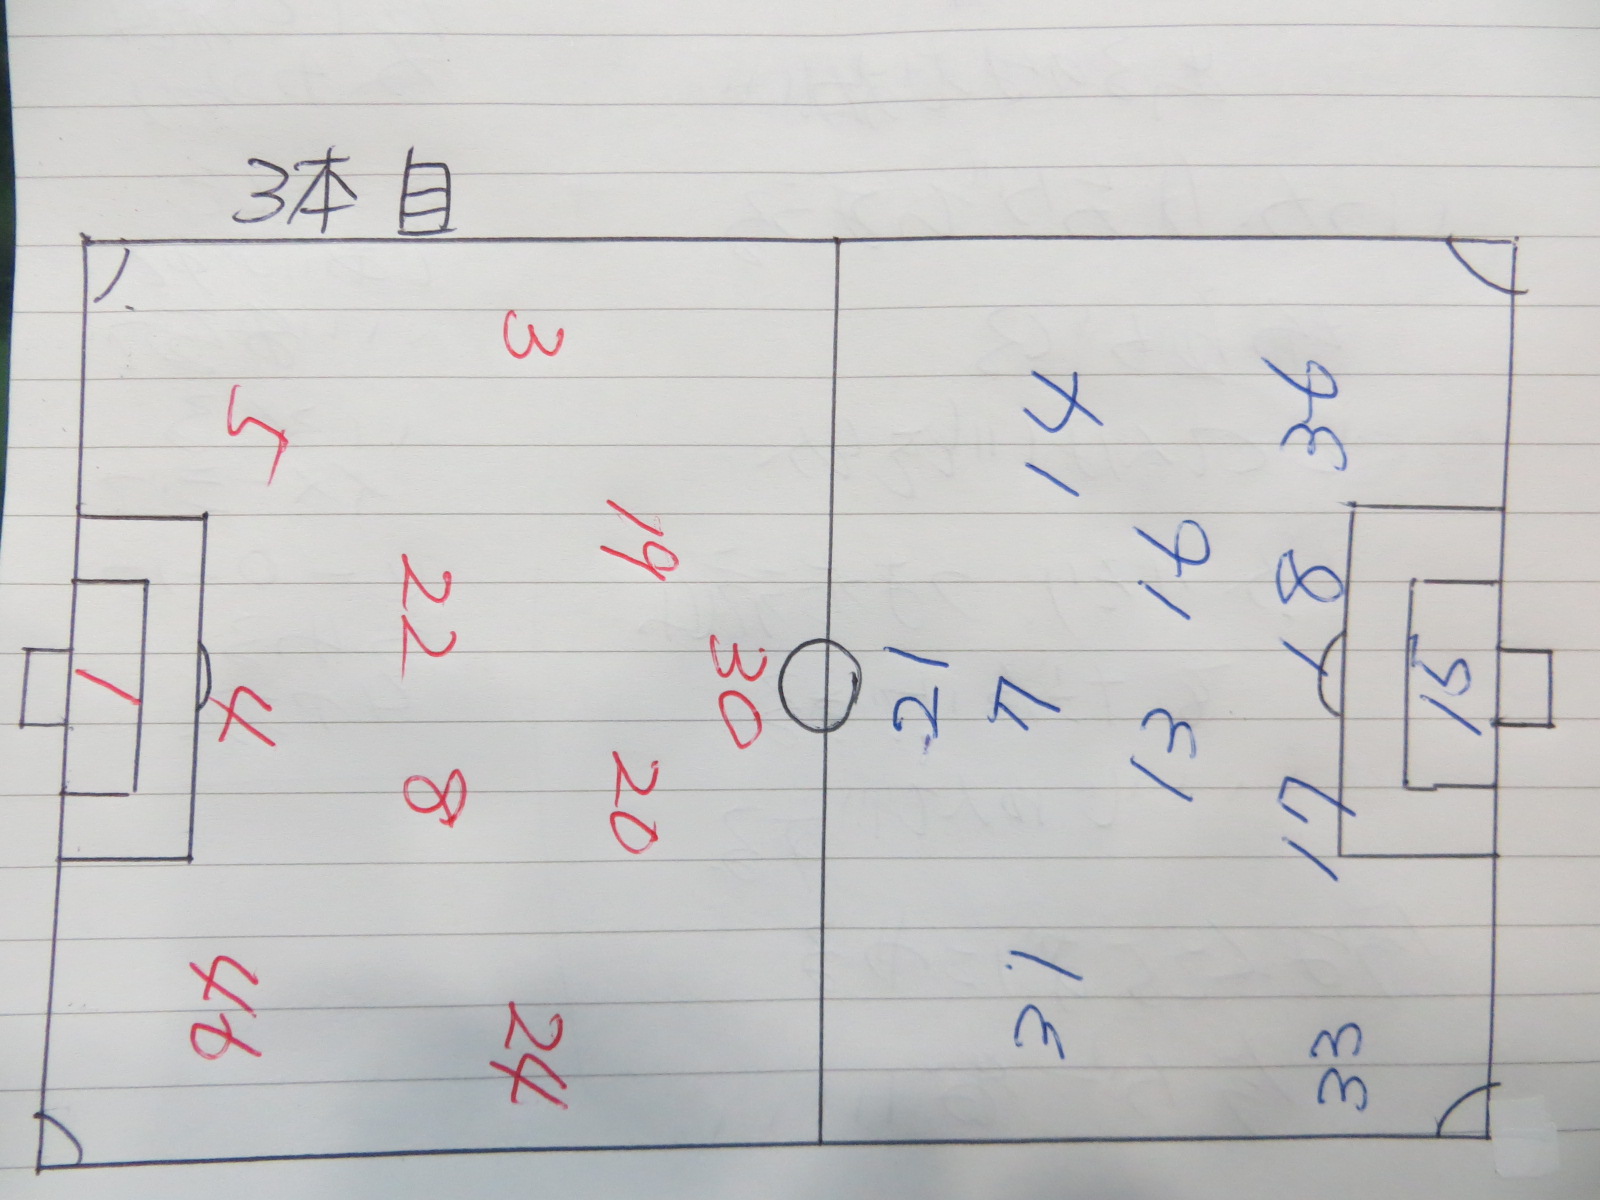 3本目
3
5
19
22
30
1
4
20
8
46
24
14
36
16
18
21
7
13
15
17
31
33